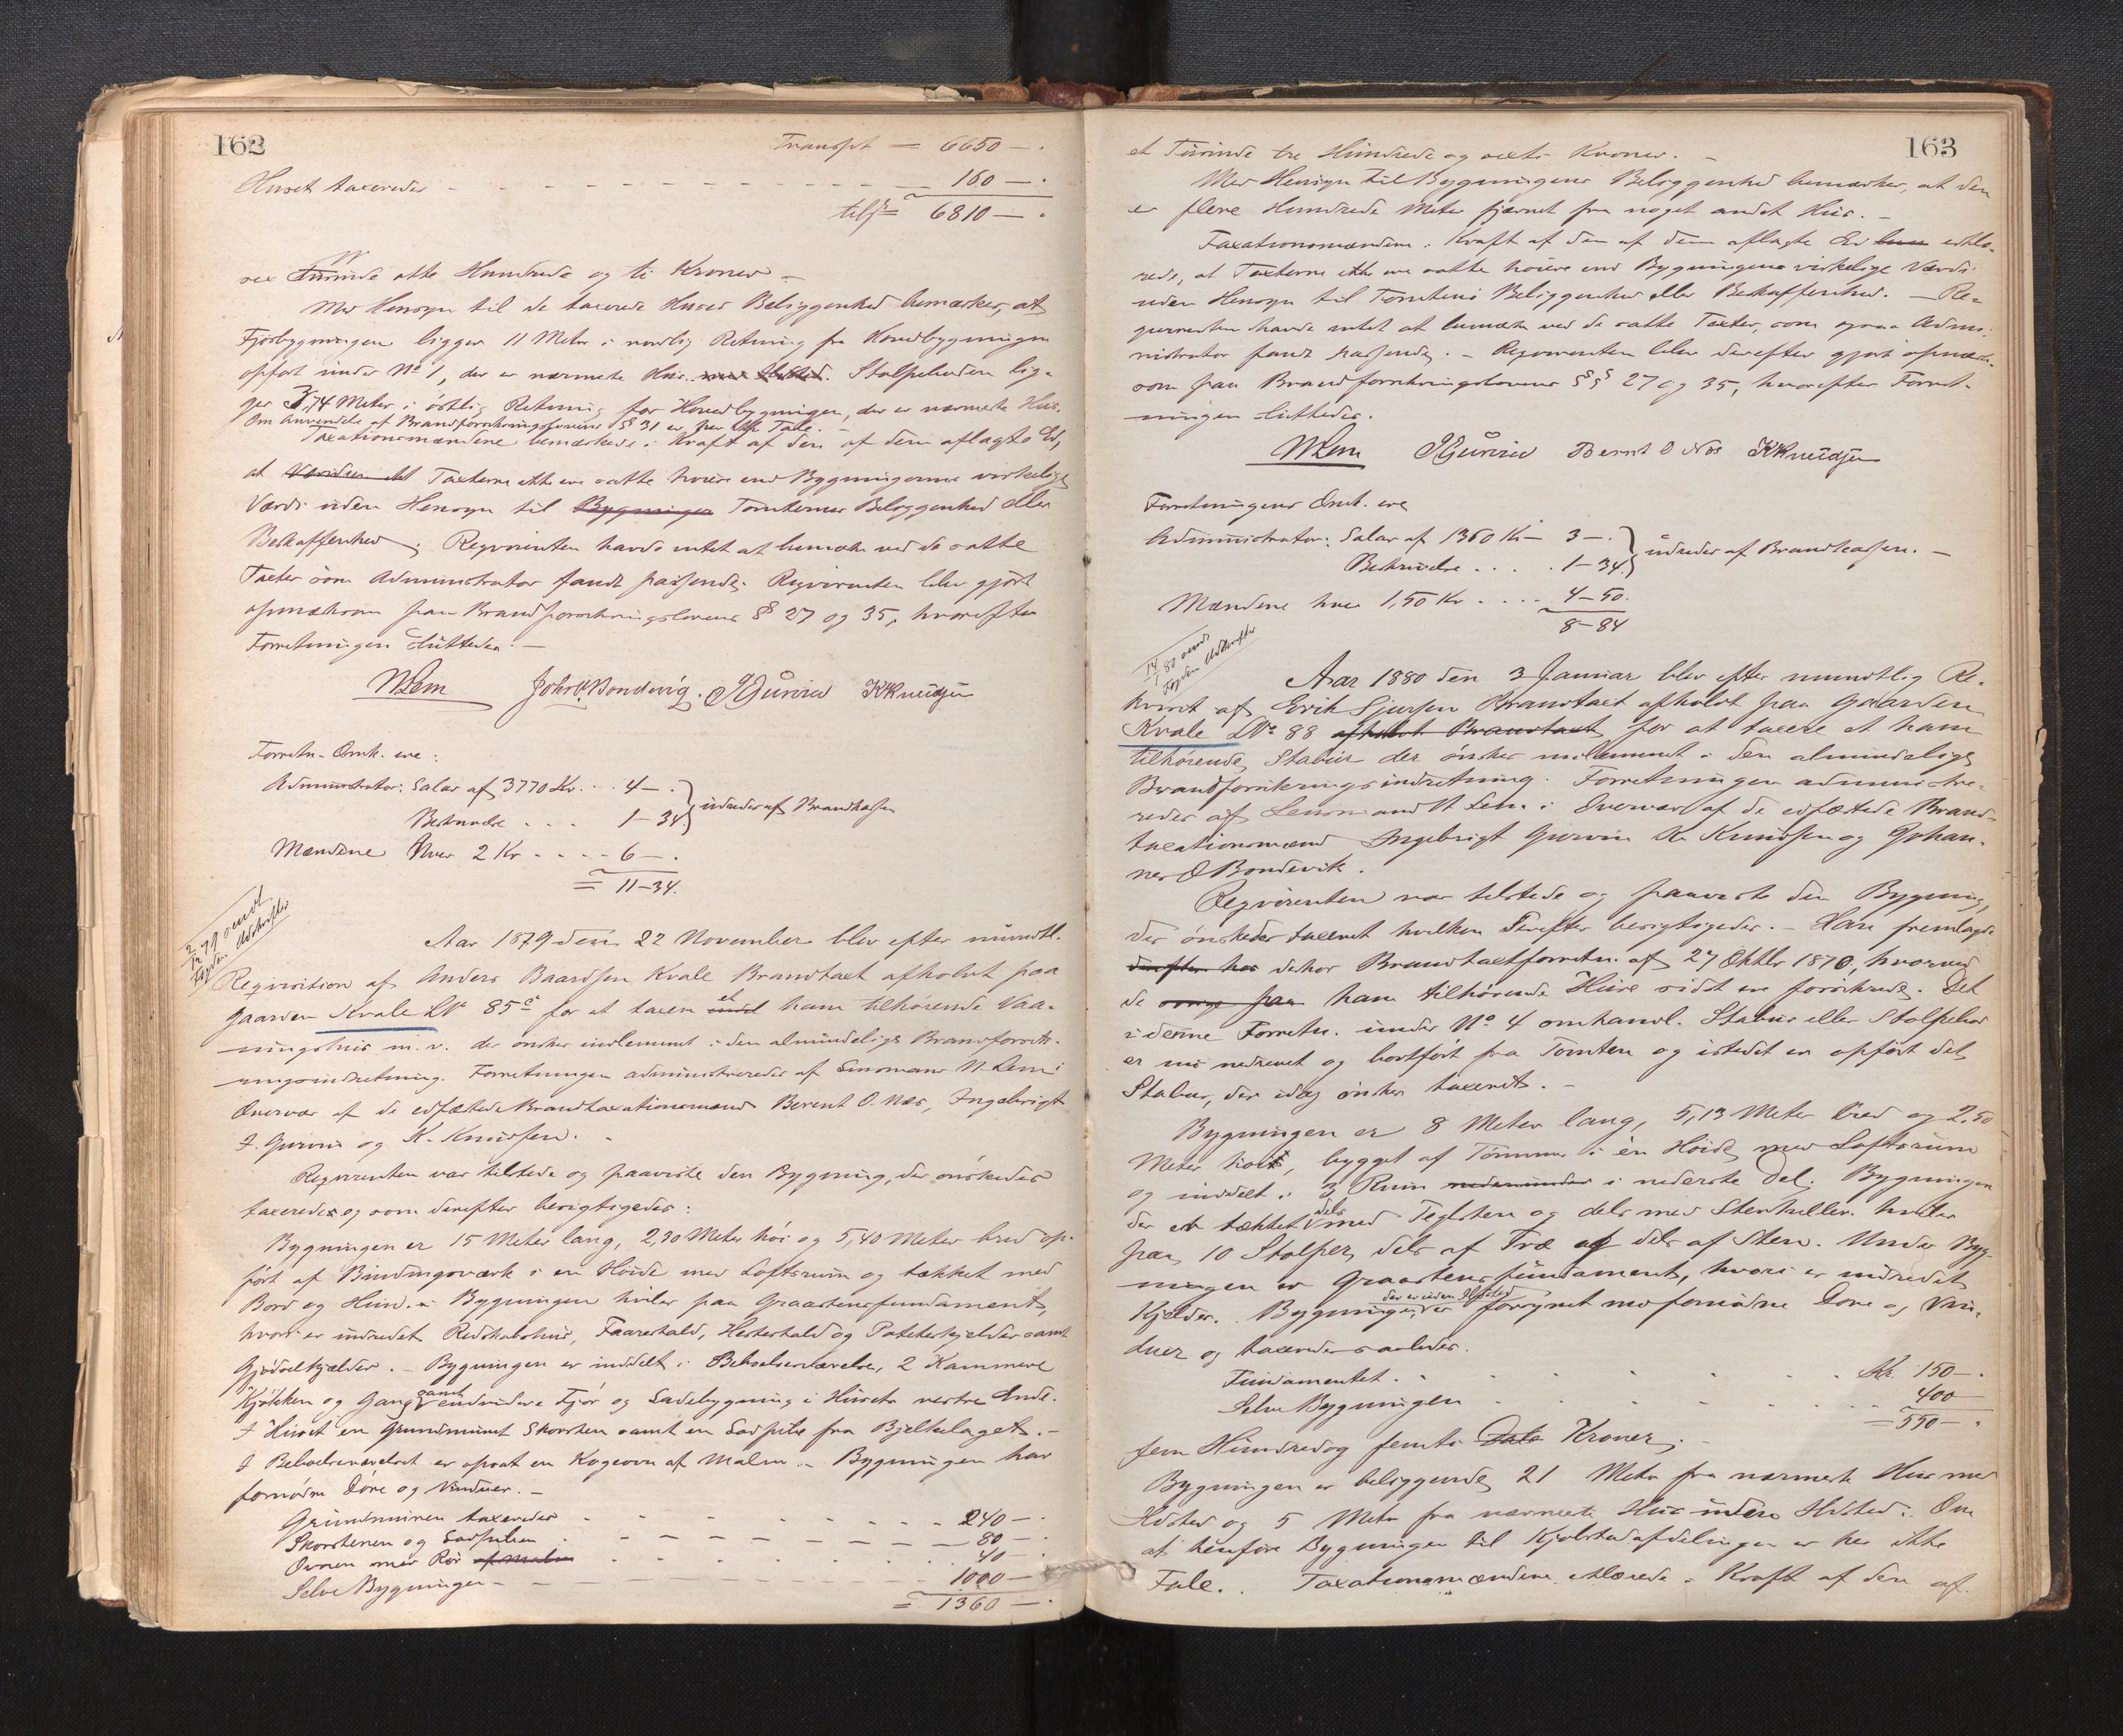 162
Transpt = 6650 — .
Huset taxeredes - - - - - 160 — .
tils = 6810 — .
sex Tusinde otte Hundrede og ti Kroner —
Med Hensyn til de taxerede Huses Beliggenhed bemærkes, at
Fjøsbygningen ligger 11 Meter i nordlig Retning fra Hovedbygningen
opført under No 1, der er nærmeste Hus. Stolpeboden lig-
ger 3,74 Meter i østlig Retning for Hovedbygningen, der er nærmeste Hus.
Om Anvendelse af Brandforsikringslovens § 31 er her ikke Tale. -
Taxationsmændene bemærkede i Kraft af den af dem aflagte Ed,
at Taxterne ikke ere satte høiere end Bygningernes virkelige
Værdi uden Hensyn til Bygninger Tomternes Beliggenhed eller
Beskaffenhed. Reqvirenten havde intet at bemærke ved de satte
Taxter som Administrator fandt passende. Reqvirenten blev gjort
opmærksom paa Brandforsikringslovens § 27 og 35, hvorefter
Forretningen sluttedes. —
NLem Johs O. Bondevig. I Gurvin KKnudsen
Forretn. Omk. ere:
Administrator: Salar af 3770 Kr. . . 4 — .
Beskrivelse . . . 1 — 34. } udredes af Brandkassen
Mændene hver 2 Kr - - - - 6 — .
= 11 — 34.
2/12 79 sendt
Fogden Udskrifter
Aar 1879 den 22 November blev efter mundtl.
Reqvisition af Anders Baardsen Kvale Brandtaxt afholdt paa
Gaarden Kvale LNo 85c for at taxere et ham tilhørende Vaa-
ningshus m. v. der ønskes indlemmet i den almindelige Brandforsik-
ringsindretning. Forretningen administreredes af Lensmand N. Lem i
Overvær af de edfæstede Brandtaxationsmænd Berent O. Næs, Ingebrigt
I. Gurvin og K. Knudsen. -
Reqvirenten var tilstede og paaviste den Bygning, der ønskedes
taxeredes og som derefter besigtigedes:
Bygningen er 15 Meter lang, 2,90 Meter høi og 5,40 Meter bred op-
ført af Bindingsværk i en Høide med Loftsrum og tækket med
Bord og Hun. Bygningen hviler paa Graastensfundament,
hvori er indredet Redskabshus, Faarestald, Hestestald og Potetkjelder samt
Gjødselkjælder. - Bygningen er inddelt i Beboelsesværelse, 2 Kammere
Kjøkken og Gang samt endvidere Fjøs og Ladebygning i Husets vestre Ende.
I Huset en Grundmuret Skorsten samt en Ladpibe fra Bjelkelaget. -
I Beboelsesværelset er opsat en Kogeovn af Malm. - Bygningen har
fornødne Døre og Vinduer. -
Grundmuren taxeredes - - - - 240 — .
Skorstenen og Ladpiben - - - - 80 — .
Ovnen med Rør af Malm - - - - 40 — .
Selve Bygningen - - - - 1000 — .
= 1360 — .
163
et Tusinde tre Hundrede og sexti Kroner. —
Med Hensyn til Bygningens Beliggenhed bemærkes, at den
er flere Hundrede Meter fjernet fra noget andet Hus. -
Taxationsmændene i Kraft af den af dem aflagte Ed erklæ-
rede, at Taxterne ikke ere satte høiere end Bygningens virkelige Værdi
uden Hensyn til Tomtens Beliggenhed eller Beskaffenhed. — Re-
qvirenten havde intet at bemærke ved de satte Taxter, som ogsaa Admi-
nistrator fandt passende. - Reqvirenten blev derefter gjort opmærk-
som paa Brandforsikringslovens §§ 27 og 35, hvorefter Forret-
ningen sluttedes.
NLem I Gurvin Bernt O Næs KKnudsen
Forretningens Omk. ere
Administrator: Salar af 1360 Kr — 3 — .
Beskrivelse . . . . 1 — 34. } udredes af Brandkassen. —
Mændene hver 1,50 Kr . . . . 4 — 50.
8 — 84
14/1 80 sendt
Fogden Udskrifter
Aar 1880 den 3 Januar blev efter mundtlig Re-
kvisit af Erik Sjursen Brandtaxt afholdt paa Gaarden
Kvale LNo 88 afholdt Brandtaxt for at taxere et ham
tilhørende Stabur der ønskes indlemmet i den almindelige
Brandforsikringsindretning. Forretningen administre-
redes af Lensmand N Lem i Overvær af de edfæstede Brand-
taxationsmænd Ingebrigt Gurvin K. Knudsen og Johan-
nes O Bondevik.
Reqvirenten var tilstede og paaviste den Bygning,
der ønskedes taxeret hvilken derefter besigtigedes. - Han fremlagde
derefter hos dehos Brandtaxtforretn. af 27 Oktbr 1870, hvorved
de ham tilhørende Huse sidst ere forsikrede. Det
i denne Forretn. under No 4 omhandl. Stabur eller Stolpebod
er nu nedrevet og bortført fra Tomten og istedet er opført det
Stabur, der idag ønskes taxeret. -
Bygningen er 8 Meter lang, 5,13 Meter bred og 2,50
Meter høi, bygget af Tømmer i én Høide med Loftsrum
og inddelt i 3 Rum i nederste Del. Bygningen
der er tækket dels med Teglsten og dels med Stenheller. hviler
paa 10 Stolper, dels af Træ og dels af Sten. Under Byg-
ningen er Graastensfundament, hvori er indredet
Kjelder. Bygningen, der er uden Ildsted er forsynet med fornødne Døre og Vin-
duer og taxeredes saaledes.
Fundamentet . . . . Kr. 150 — .
Selve Bygningen . . . . 400
= 550 — .
fem Hundred og femti Kroner. -
Bygningen er beliggende 21 Meter fra nærmeste Hus med
Ildsted og 5 Meter fra nærmeste Hus uden Ildsted. Om
at henføre Bygningen til Kjøbstadafdelingen er her ikke
Tale. Taxationsmændene erklærede i Kraft af den af